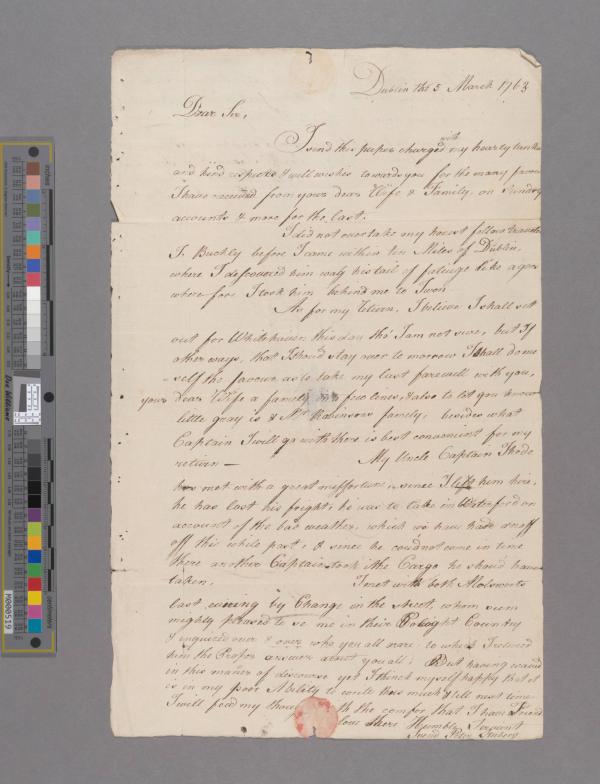 Dublin the 5 March 1763
Dear Sir,
I send this paper charged with my hearty thanks
and kind respects & well wishes towards you for the many favours
I have received from your dear Wife & Family, on Sundry
accounts & more for the last.
I did not overtake my honest fellow traveler
J. Buckly before I came within ten Miles of Dublin,
where I discovered him wag his tail of fatuge like a
where fore I took him behind me to Twon
As for my return, I believe I shall sett
out for Whitehaven this day tho' I am not sure, but If
other ways, that I should stay over to morrow I shall do me
self the favour as to take my last farewell with you,
your Dear Wife a family in a few lines, & also to let you know
little gray is & Mr Robinsons family, besides what
Captain I will go with there is best convenient for my
return —
My Uncle Captain Thode
has met with a great missfortune, since I left him here,
he has lost his fright, he was to take in Waterford on
account of the bad weather, which we have had enoff
off this while past, & since he coud not come in time
there another Captain took the Cargo he shoud have
taken.
I met with both Molsworts
last evining by Change in the street, whom seem
mighty pleased to se me in their Country
& inquired over & over who you all ware: to which I returned
him the Proper answer about you all; But having waved
in this maner of discourse yet I think myself happy that it
is in my poor Ability to write this much & till next time
I will feed my with the comfor that I have Friend
Humble Servant
Friend Peter
inches
M000519